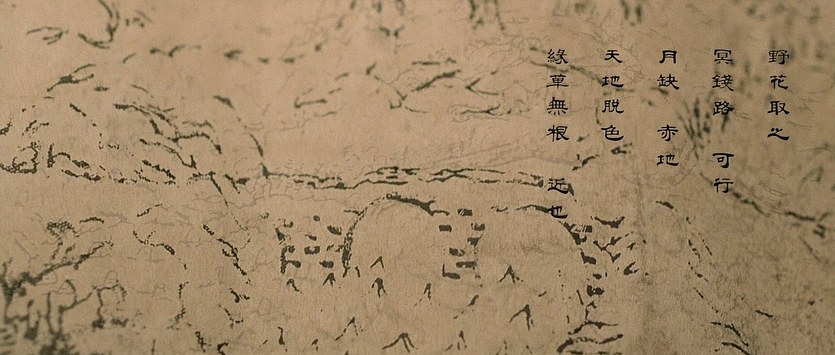 野花取之
冥錢路 可行
月缺 赤地
天地脫色
緣草無根 近也